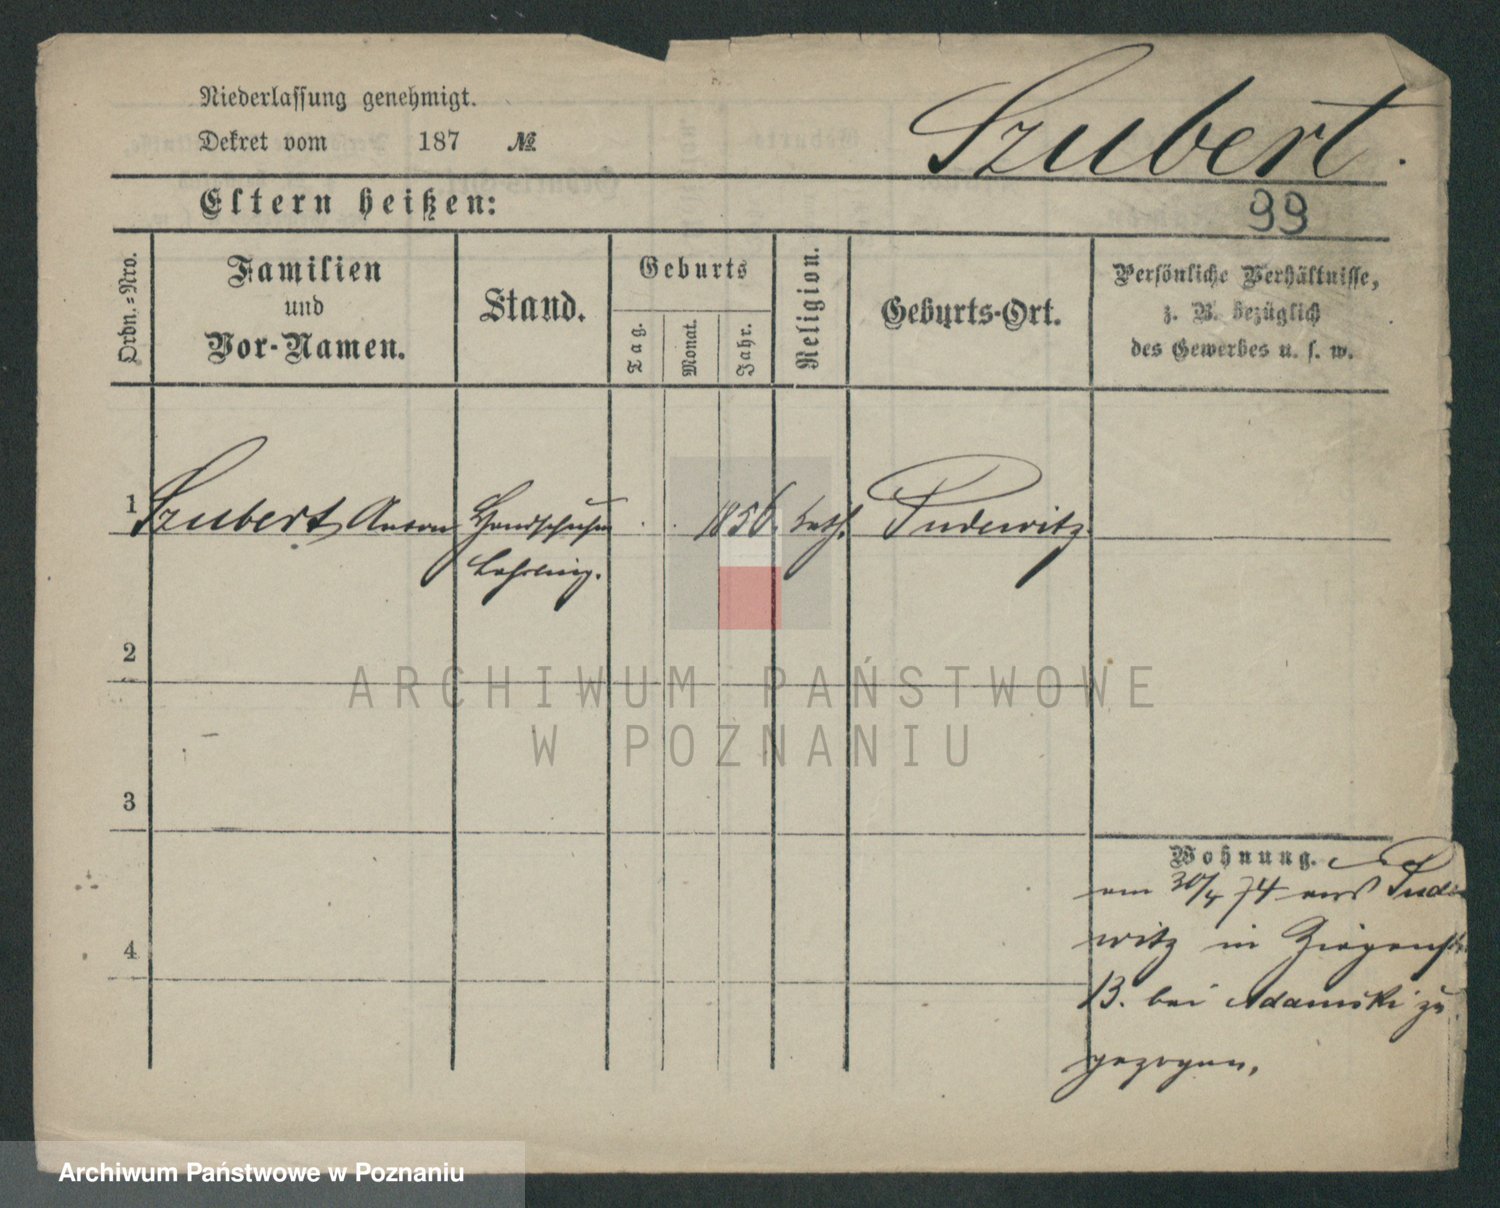 Niederlassung genehmigt.
Dekret vom 187 №
Szubert.
Eltern heißen:
99
Ordn.=Nro.
Familien
und
Vor-Namen.
Stand.
Geburts
Tag.
Monat.
Jahr.
Religion.
Geburts-Ort.
Persönliche Verhältnisse,
z. B. bezüglich
des Gewerbes u. s. w.
1 Szubert, Anton Handschuhm 1856. kath. Pudewitz.
Lehrling.
2
3
4
Wohnung.
am 30/4 74 aus Pude
witz in Ziegenstr
13. bei Adamski zu
gezogen,
ARCHIWUM PAŃSTWOWE
W POZNANIU
Archiwum Państwowe w Poznaniu